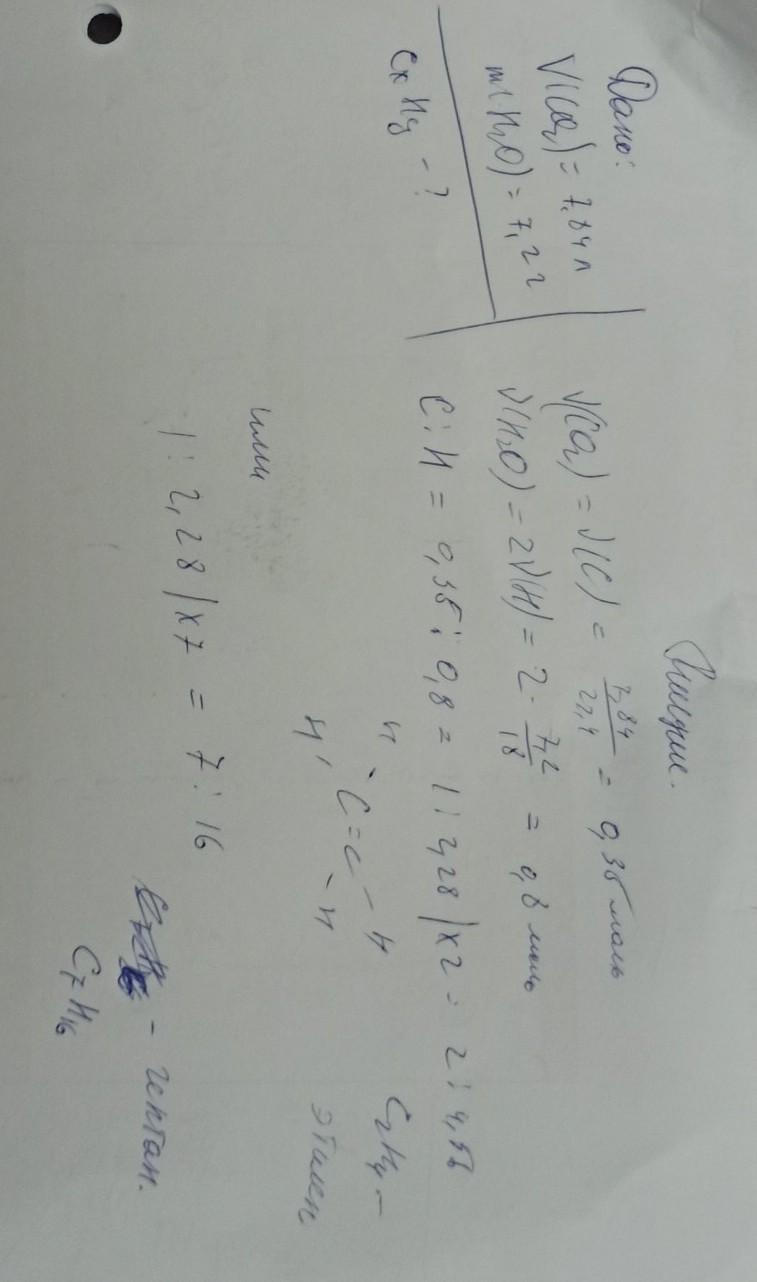 Дано:
V(CO₂) = 7,84 л
m(H₂O) = 7,2 г
CxHy - ?
Решение.
ν(CO₂) = ν(C) = 7,84/22,4 = 0,35 моль
ν(H₂O) = 2ν(H) = 2 · 7,2/18 = 0,8 моль
C : H = 0,35 : 0,8 = 1 : 2,28 | x2 = 2 : 4,56
H H
C = C
H H
C₂H₄ -
этилен
или
1 : 2,28 | x7 = 7 : 16
- гептан.
C₇H₁₆